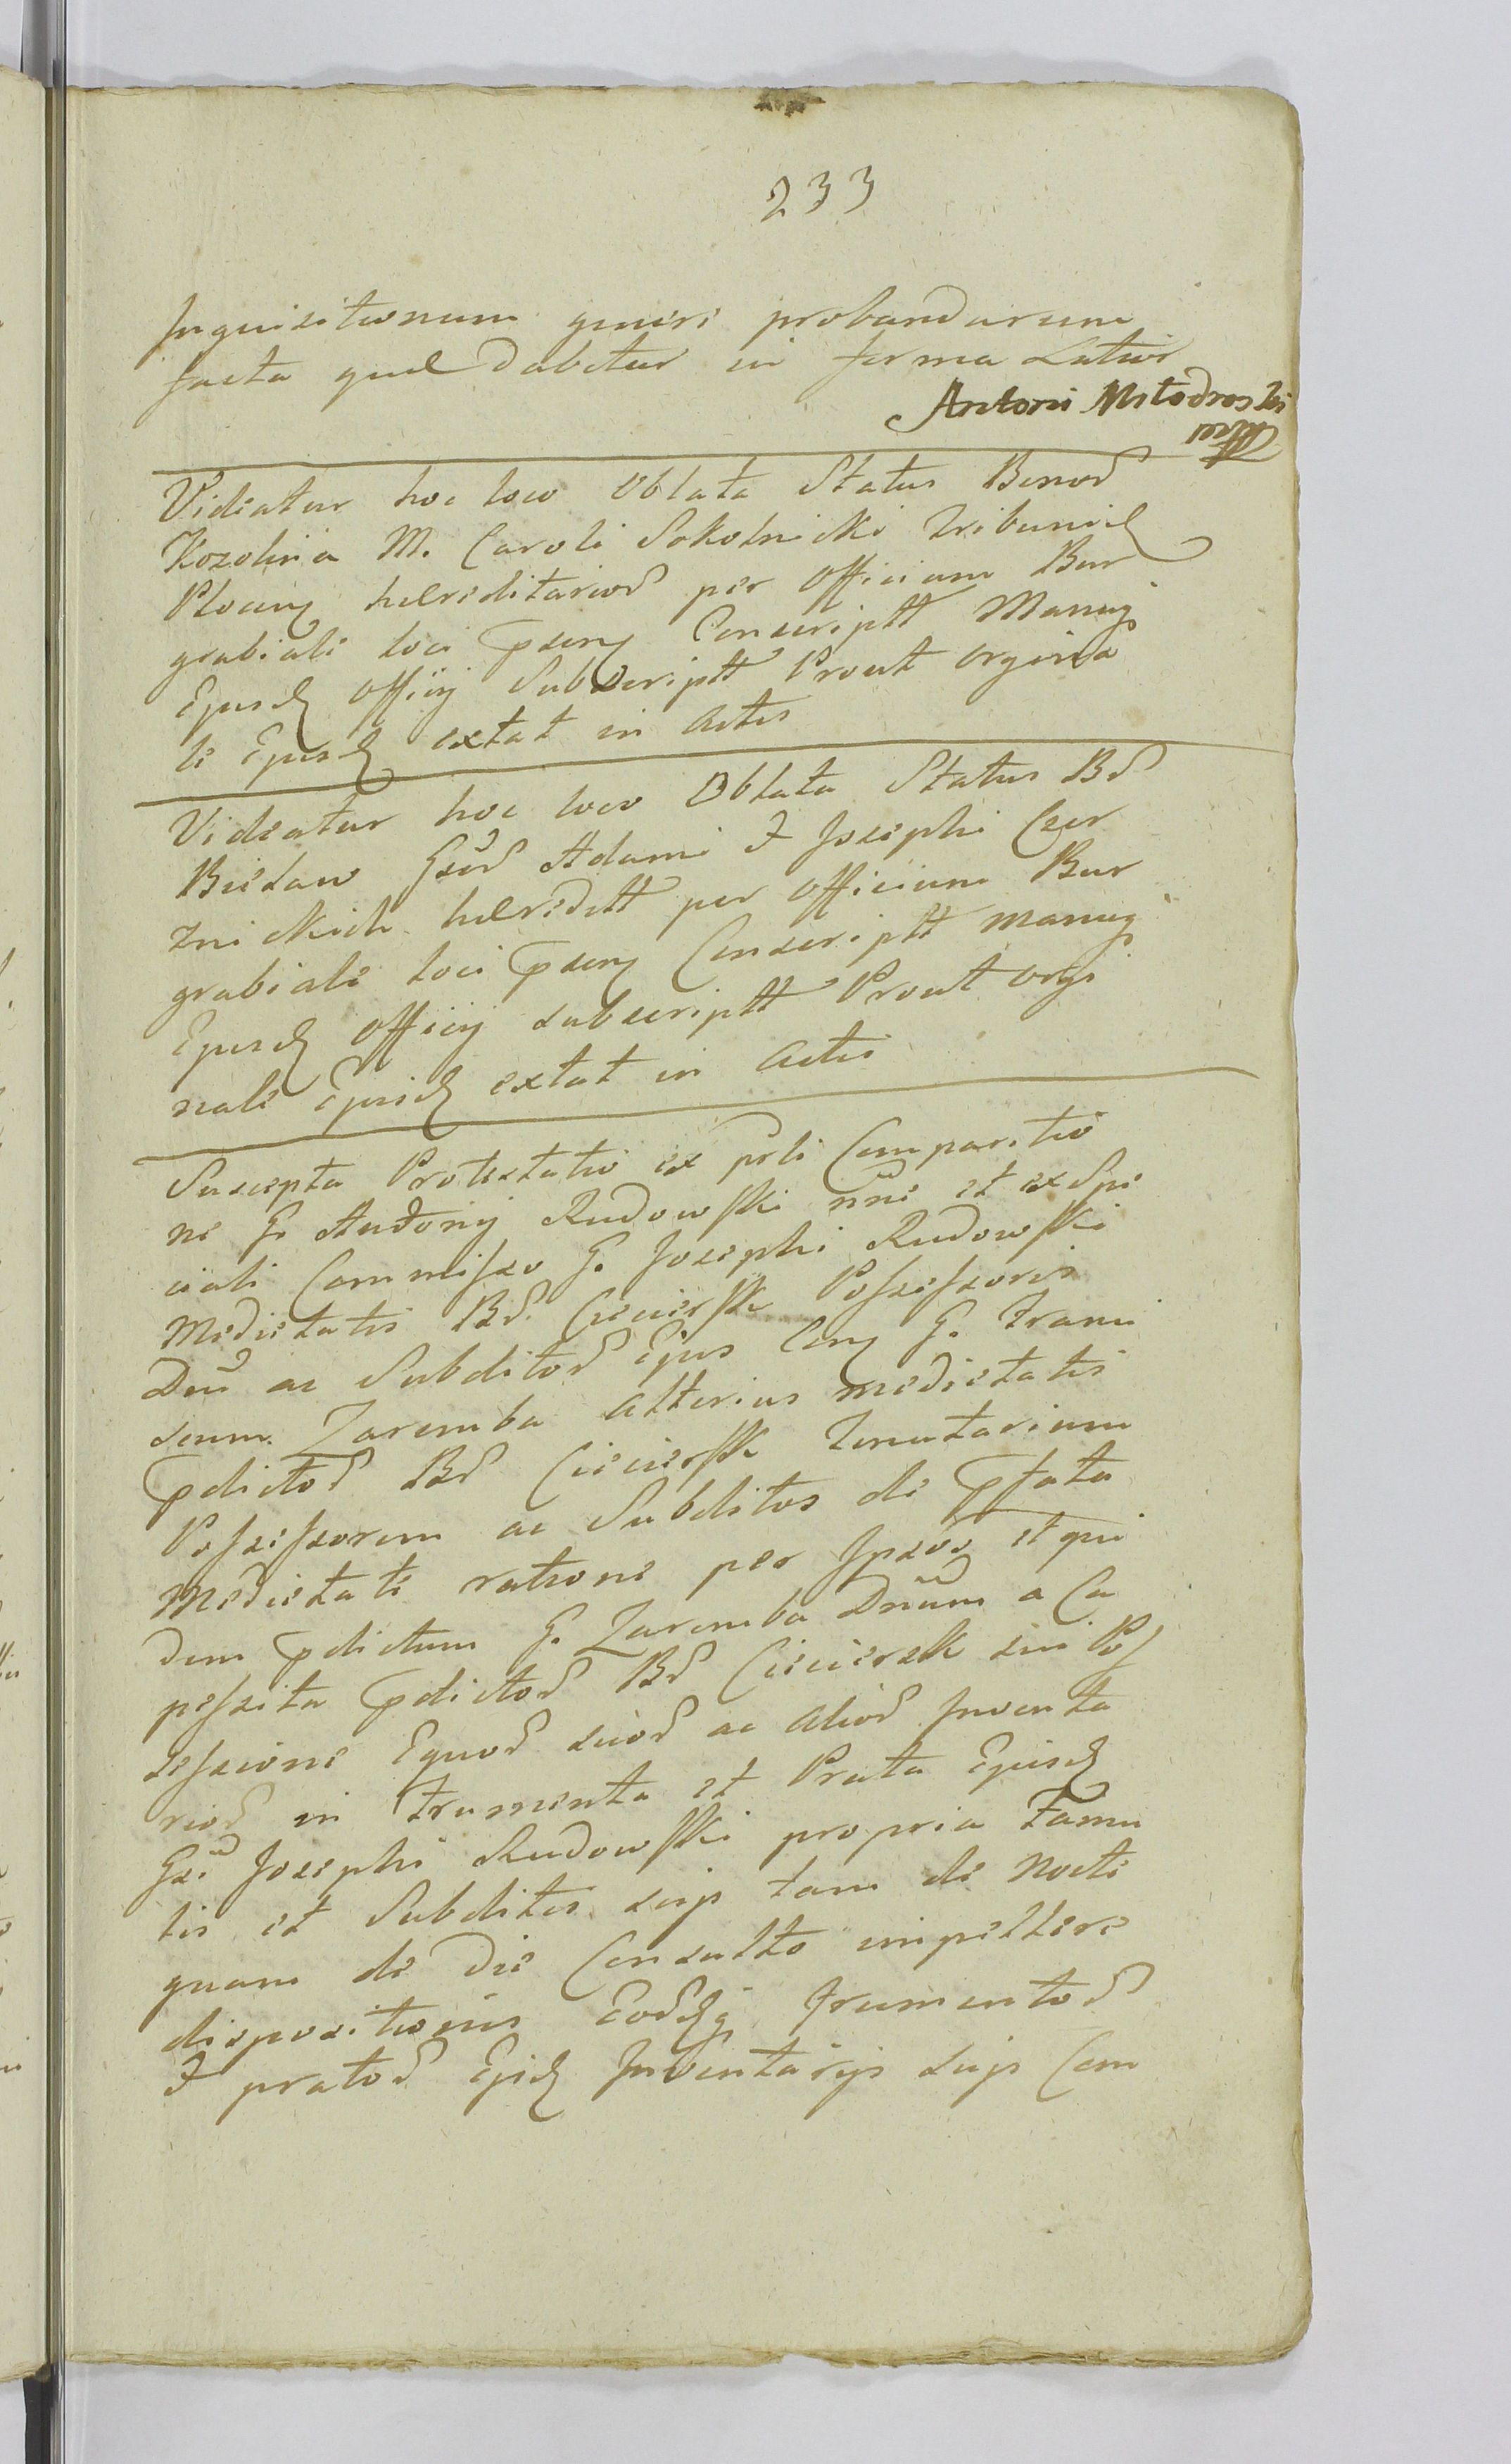 233
Inquisitionum generi probandarum
facta quae dabitur in forma Latior
Antoni Młodroski
Videatur hoc loco Oblata Status Bonor
Kozolinia M. Caroli Sokolnicki Tribunid
Plocen haereditarior per Officium Bur
grabiali loci psen Conscriptt Manuq
Ejusd Officij Subscriptt Prout Orgina
le Ejusd extat in Actis
Videatur hoc loco Oblata Status Br
Biezaw Gsor Adami & Josephi Czer
znickich haereditt per Officium Bur
grabiale loci psen Conscriptt manuq
Ejusd Officij subscriptt Prout Orgi
nale Ejusd extat in Actis
Suscepta Protestatio ex psti Comparitio
ne G. Andonij Rudowski nne et ex Spe
ciali Commisso G. Josephi Rudowski
Medietatis Br Ciecierski Possessoris
Dni ac Subditor Ejus Con G. Franci
scum Zaremba Alterius medietatis
pdictor Br Ciecierski Tenutarium
Possessorem ac Subditos de pfata
Medietate ratione per Ipsos et qui
dem pdictum G. Zaremba Dnum a Ca
pessita pdictor Br Cieciersk sui Pos
sessione Equor suor ac Alior Inventa
rior in frumenta et Prata Ejusd
Gsi Josephi Rudowski propria Famu
lis et Subditis suis tam de Nocte
quam de Die Consulto impellere
dispositionis Eordq frumentor
& prator Ejsd Inventarijs suis Com